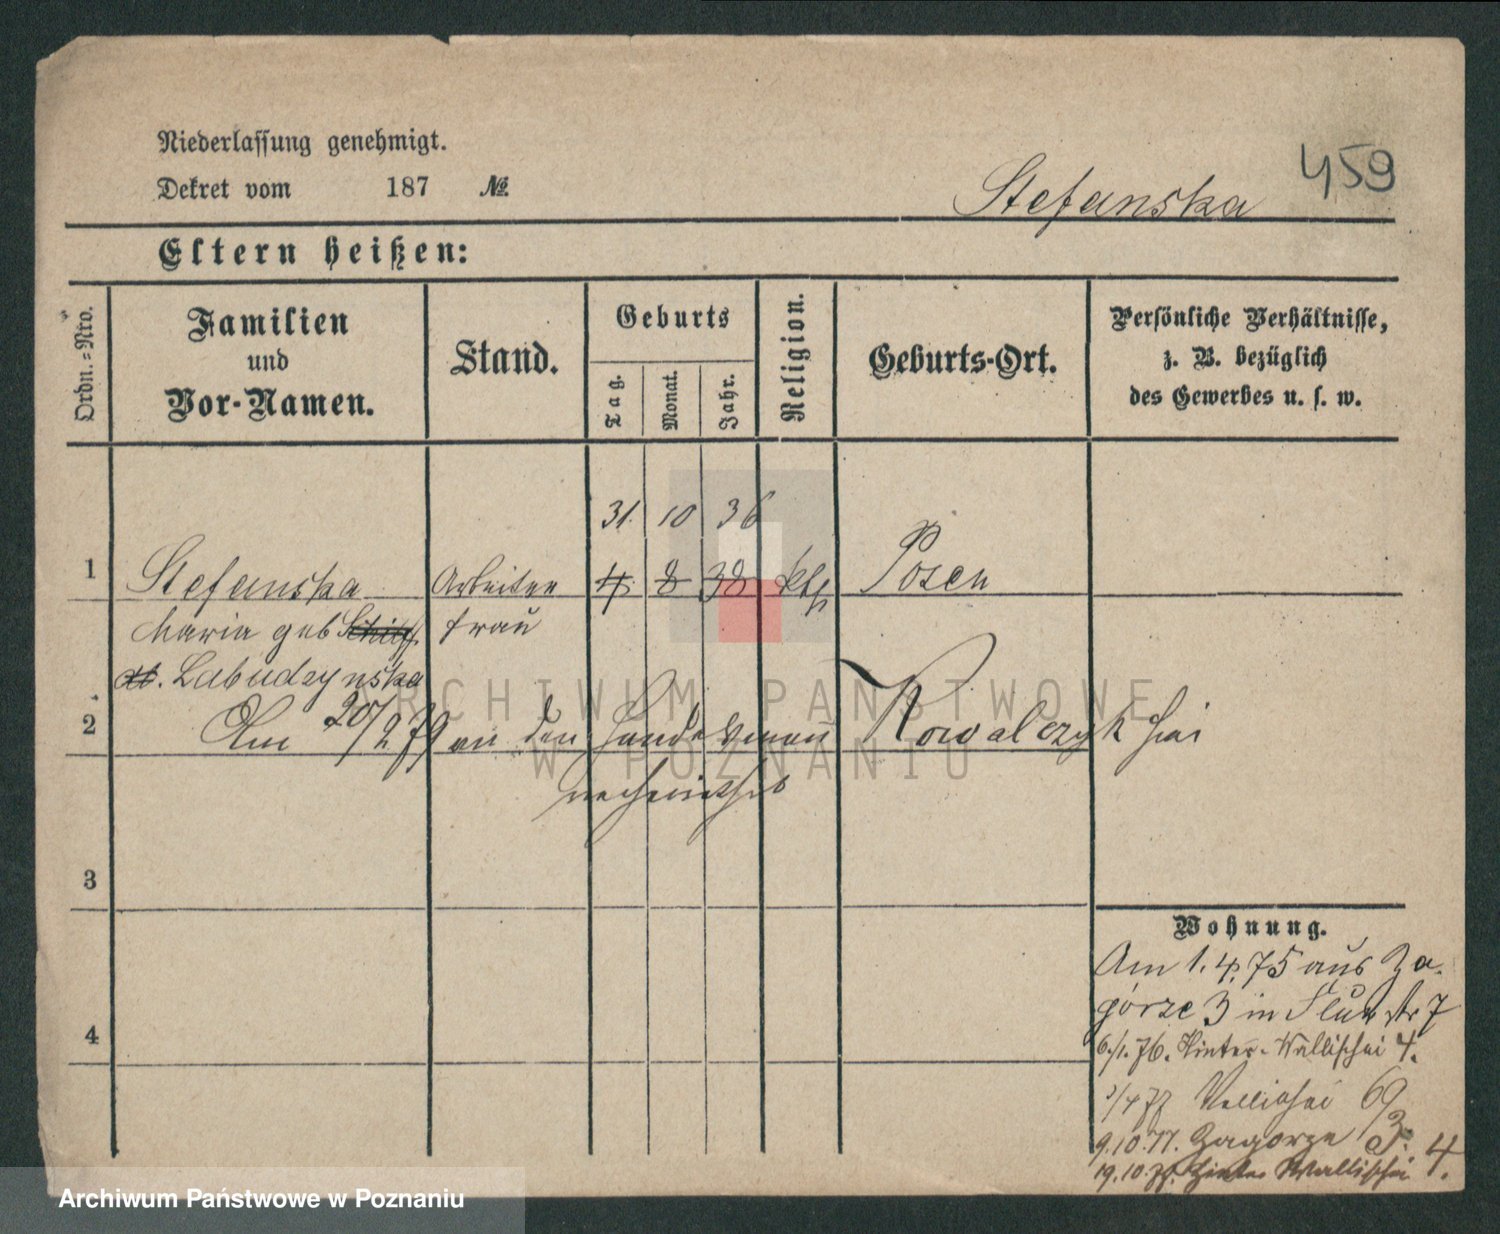 Niederlassung genehmigt.
Dekret vom 187 №
459
Stefanska
Eltern heißen:
Ordn.=Nro.
Familien
und
Vor-Namen.
Stand.
Geburts
Tag.
Monat.
Jahr.
Religion.
Geburts-Ort.
Persönliche Verhältnisse,
z. B. bezüglich
des Gewerbes u. s. w.
31. 10 36
1 Stefanska Arbeiter 4. 8 38 kth Posen
Maria geb frau
Labudzynska
2 Am 20/2 79 an den Handelsmann Kowalczyk hier
verheirathet
3
4
Wohnung.
Am 1.4.75 aus Za-
górze 3 in Flur str 7
6./1. 76. Hinter-Wallischei 4.
/4 77 Wallischei 69
9.10.77. Zagorze 3.
19.10.77. Hinter Wallischei 4.
ARCHIWUM PAŃSTWOWE
W POZNANIU
Archiwum Państwowe w Poznaniu